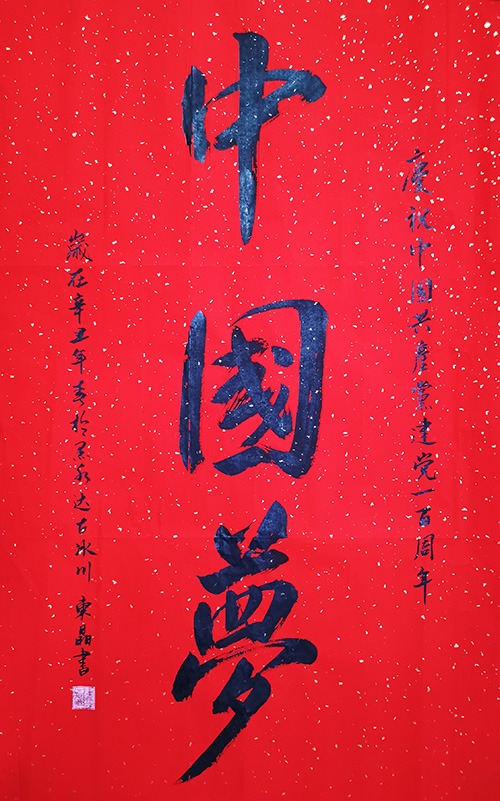 慶祝中國共產黨建党一百周年
中國夢
歲在辛丑年春於黑水达古冰川 東晶書